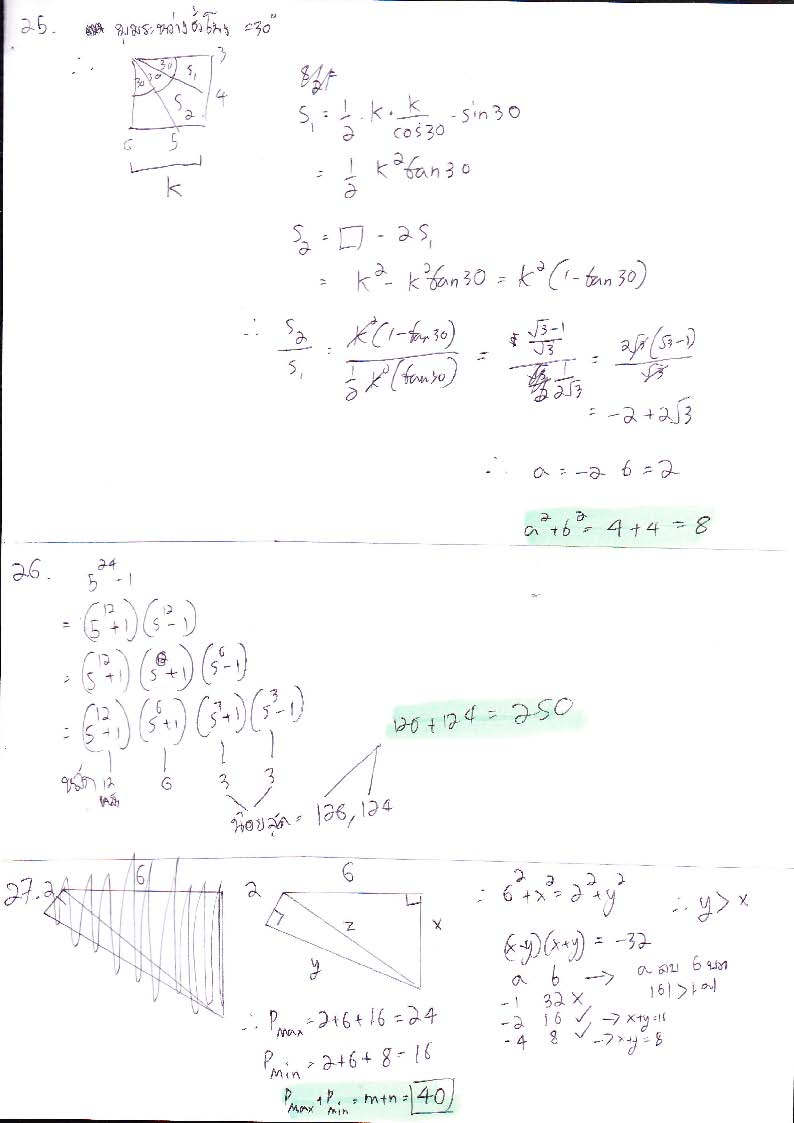 25. มุมระหว่างชั่วโมง = 30°
∴
30 30 30 S₁ S₂
3
4
6 5
k
S₁ = 1/2 · k · k/cos30 · sin30
= 1/2 k² tan30
S₂ = □ - 2S₁
= k² - k² tan30 = k² (1 - tan30)
∴ S₂/S₁ = k²(1 - tan30) / 1/2 k²(tan30) = (√3-1)/√3 / 1/(2√3) = 2√3(√3-1)/√3
= -2 + 2√3
∴ a = -2 b = 2
a² + b² = 4 + 4 = 8
26. 5²⁴ - 1
= (5¹² + 1)(5¹² - 1)
= (5¹² + 1)(5⁶ + 1)(5⁶ - 1)
= (5¹² + 1)(5⁶ + 1)(5³ + 1)(5³ - 1)
12 6 3 3
หลัก
น้อยสุด = 126, 124
126 + 124 = 250
27. 2 6
2 6 x y z
∴ 6² + x² = 2² + y² ∴ y > x
(x-y)(x+y) = -32
a b → a ลบ b บวก
|b| > |a|
-1 32 ×
-2 16 ✓ → x+y = 16
-4 8 ✓ → x+y = 8
∴ Pmax = 2 + 6 + 16 = 24
Pmin = 2 + 6 + 8 = 16
Pmax + Pmin = m + n = 40